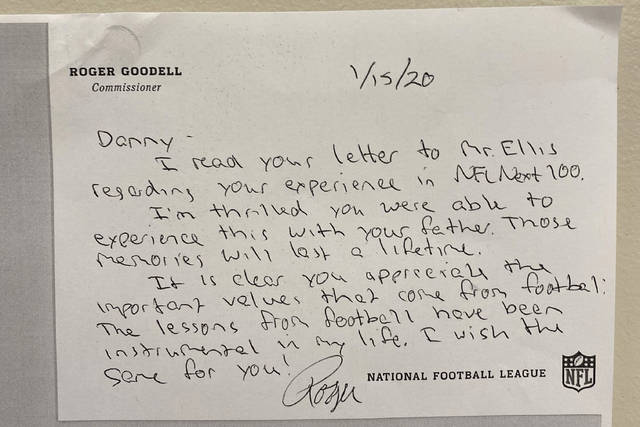 ROGER GOODELL
Commissioner
1/15/20
Danny -
I read your letter to Mr. Ellis
regarding your experience in NFL Next 100.
I'm thrilled you were able to
experience this with your father. Those
memories will last a lifetime.
It is clear you appreciate the
important values that come from football.
The lessons from football have been
instrumental in my life. I wish the
same for you!
Roger
NATIONAL FOOTBALL LEAGUE
NFL